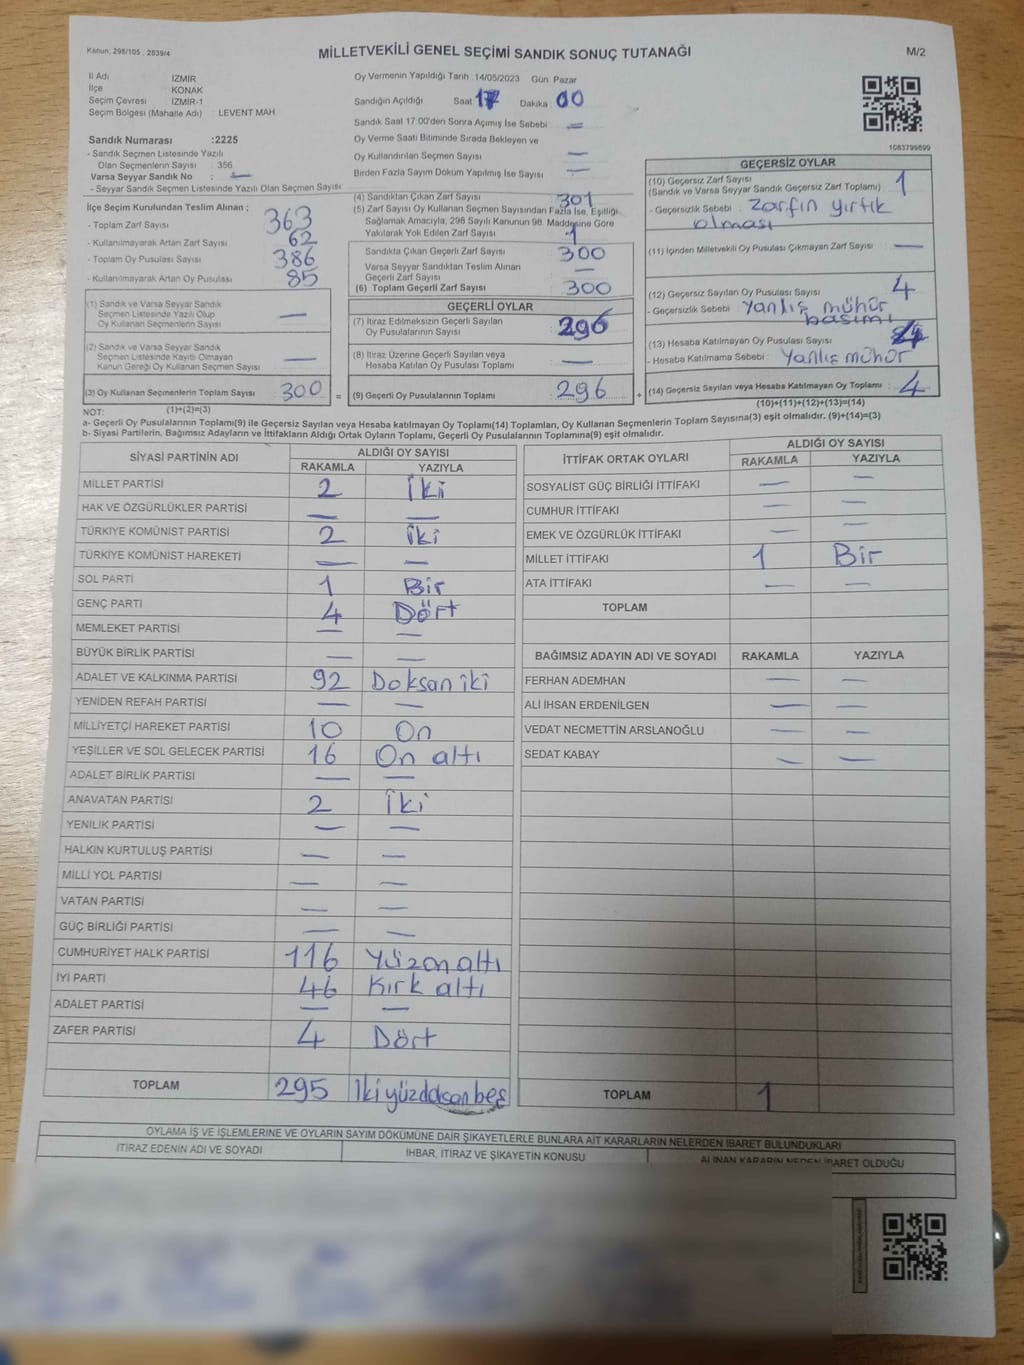 Kanun; 298/105 , 2839/4
MİLLETVEKİLİ GENEL SEÇİMİ SANDIK SONUÇ TUTANAĞI
M/2
İl Adı İZMİR
İlçe KONAK
Seçim Çevresi İZMİR-1
Seçim Bölgesi (Mahalle Adı) : LEVENT MAH
Sandık Numarası :2225
- Sandık Seçmen Listesinde Yazılı
Olan Seçmenlerin Sayısı : 356
Varsa Seyyar Sandık No : —
- Seyyar Sandık Seçmen Listesinde Yazılı Olan Seçmen Sayısı
Oy Vermenin Yapıldığı Tarih :14/05/2023 Gün Pazar
Sandığın Açıldığı Saat 17 Dakika 00
Sandık Saat 17:00'den Sonra Açımış İse Sebebi —
Oy Verme Saati Bitiminde Sırada Bekleyen ve
Oy Kullandırılan Seçmen Sayısı —
Birden Fazla Sayım Döküm Yapılmış İse Sayısı —
1083799899
İlçe Seçim Kurulundan Teslim Alınan ;
- Toplam Zarf Sayısı 363
- Kullanılmayarak Artan Zarf Sayısı 62
- Toplam Oy Pusulası Sayısı 386
- Kullanılmayarak Artan Oy Pusulası 85
(1) Sandık ve Varsa Seyyar Sandık
Seçmen Listesinde Yazılı Olup
Oy Kullanan Seçmenlerin Sayısı —
(2) Sandık ve Varsa Seyyar Sandık
Seçmen Listesinde Kayıtlı Olmayan
Kanun Gereği Oy Kullanan Seçmen Sayısı —
(3) Oy Kullanan Seçmenlerin Toplam Sayısı 300 =
(1)+(2)=(3)
(4) Sandıktan Çıkan Zarf Sayısı 301
(5) Zarf Sayısı Oy Kullanan Seçmen Sayısından Fazla İse, Eşitliği
Sağlamak Amacıyla, 298 Sayılı Kanunun 98. Maddesine Göre
Yakılarak Yok Edilen Zarf Sayısı 1
Sandıkta Çıkan Geçerli Zarf Sayısı 300
Varsa Seyyar Sandıktan Teslim Alınan
Geçerli Zarf Sayısı —
(6) Toplam Geçerli Zarf Sayısı 300
GEÇERLİ OYLAR
(7) İtiraz Edilmeksizin Geçerli Sayılan
Oy Pusulalarının Sayısı 296
(8) İtiraz Üzerine Geçerli Sayılan veya
Hesaba Katılan Oy Pusulası Toplamı —
(9) Geçerli Oy Pusulalarının Toplamı 296 +
GEÇERSİZ OYLAR
(10) Geçersiz Zarf Sayısı 1
(Sandık ve Varsa Seyyar Sandık Geçersiz Zarf Toplamı)
- Geçersizlik Sebebi : Zarfın yırtık
olması
(11) İçinden Milletvekili Oy Pusulası Çıkmayan Zarf Sayısı —
(12) Geçersiz Sayılan Oy Pusulası Sayısı 4
- Geçersizlik Sebebi : Yanlış mühür
basımı
(13) Hesaba Katılmayan Oy Pusulası Sayısı 4
- Hesaba Katılmama Sebebi : Yanlış mühür
(14) Geçersiz Sayılan veya Hesaba Katılmayan Oy Toplamı : 4
(10)+(11)+(12)+(13)=(14)
NOT:
a- Geçerli Oy Pusulalarının Toplamı(9) ile Geçersiz Sayılan veya Hesaba katılmayan Oy Toplamı(14) Toplamları, Oy Kullanan Seçmenlerin Toplam Sayısına(3) eşit olmalıdır. (9)+(14)=(3)
b- Siyasi Partilerin, Bağımsız Adayların ve İttifakların Aldığı Ortak Oyların Toplamı, Geçerli Oy Pusulalarının Toplamına(9) eşit olmalıdır.
SİYASİ PARTİNİN ADI ALDIĞI OY SAYISI
RAKAMLA YAZIYLA
MİLLET PARTİSİ 2 İki
HAK VE ÖZGÜRLÜKLER PARTİSİ — —
TÜRKİYE KOMÜNİST PARTİSİ 2 İki
TÜRKİYE KOMÜNİST HAREKETİ — —
SOL PARTİ 1 Bir
GENÇ PARTİ 4 Dört
MEMLEKET PARTİSİ — —
BÜYÜK BİRLİK PARTİSİ — —
ADALET VE KALKINMA PARTİSİ 92 Doksan iki
YENİDEN REFAH PARTİSİ — —
MİLLİYETÇİ HAREKET PARTİSİ 10 On
YEŞİLLER VE SOL GELECEK PARTİSİ 16 On altı
ADALET BİRLİK PARTİSİ — —
ANAVATAN PARTİSİ 2 İki
YENİLİK PARTİSİ — —
HALKIN KURTULUŞ PARTİSİ — —
MİLLİ YOL PARTİSİ — —
VATAN PARTİSİ — —
GÜÇ BİRLİĞİ PARTİSİ — —
CUMHURİYET HALK PARTİSİ 116 Yüzon altı
İYİ PARTİ 46 Kırk altı
ADALET PARTİSİ — —
ZAFER PARTİSİ 4 Dört
TOPLAM 295
İTTİFAK ORTAK OYLARI ALDIĞI OY SAYISI
RAKAMLA YAZIYLA
SOSYALİST GÜÇ BİRLİĞİ İTTİFAKI — —
CUMHUR İTTİFAKI — —
EMEK VE ÖZGÜRLÜK İTTİFAKI — —
MİLLET İTTİFAKI 1 Bir
ATA İTTİFAKI — —
TOPLAM
BAĞIMSIZ ADAYIN ADI VE SOYADI RAKAMLA YAZIYLA
FERHAN ADEMHAN — —
ALİ İHSAN ERDENİLGEN — —
VEDAT NECMETTİN ARSLANOĞLU — —
SEDAT KABAY — —
TOPLAM 1
OYLAMA İŞ VE İŞLEMLERİNE VE OYLARIN SAYIM DÖKÜMÜNE DAİR ŞİKAYETLERLE BUNLARA AİT KARARLARIN NELERDEN İBARET BULUNDUKLARI
İTİRAZ EDENİN ADI VE SOYADI İHBAR, İTİRAZ VE ŞİKAYETİN KONUSU ALINAN KARARIN NEDEN İBARET OLDUĞU